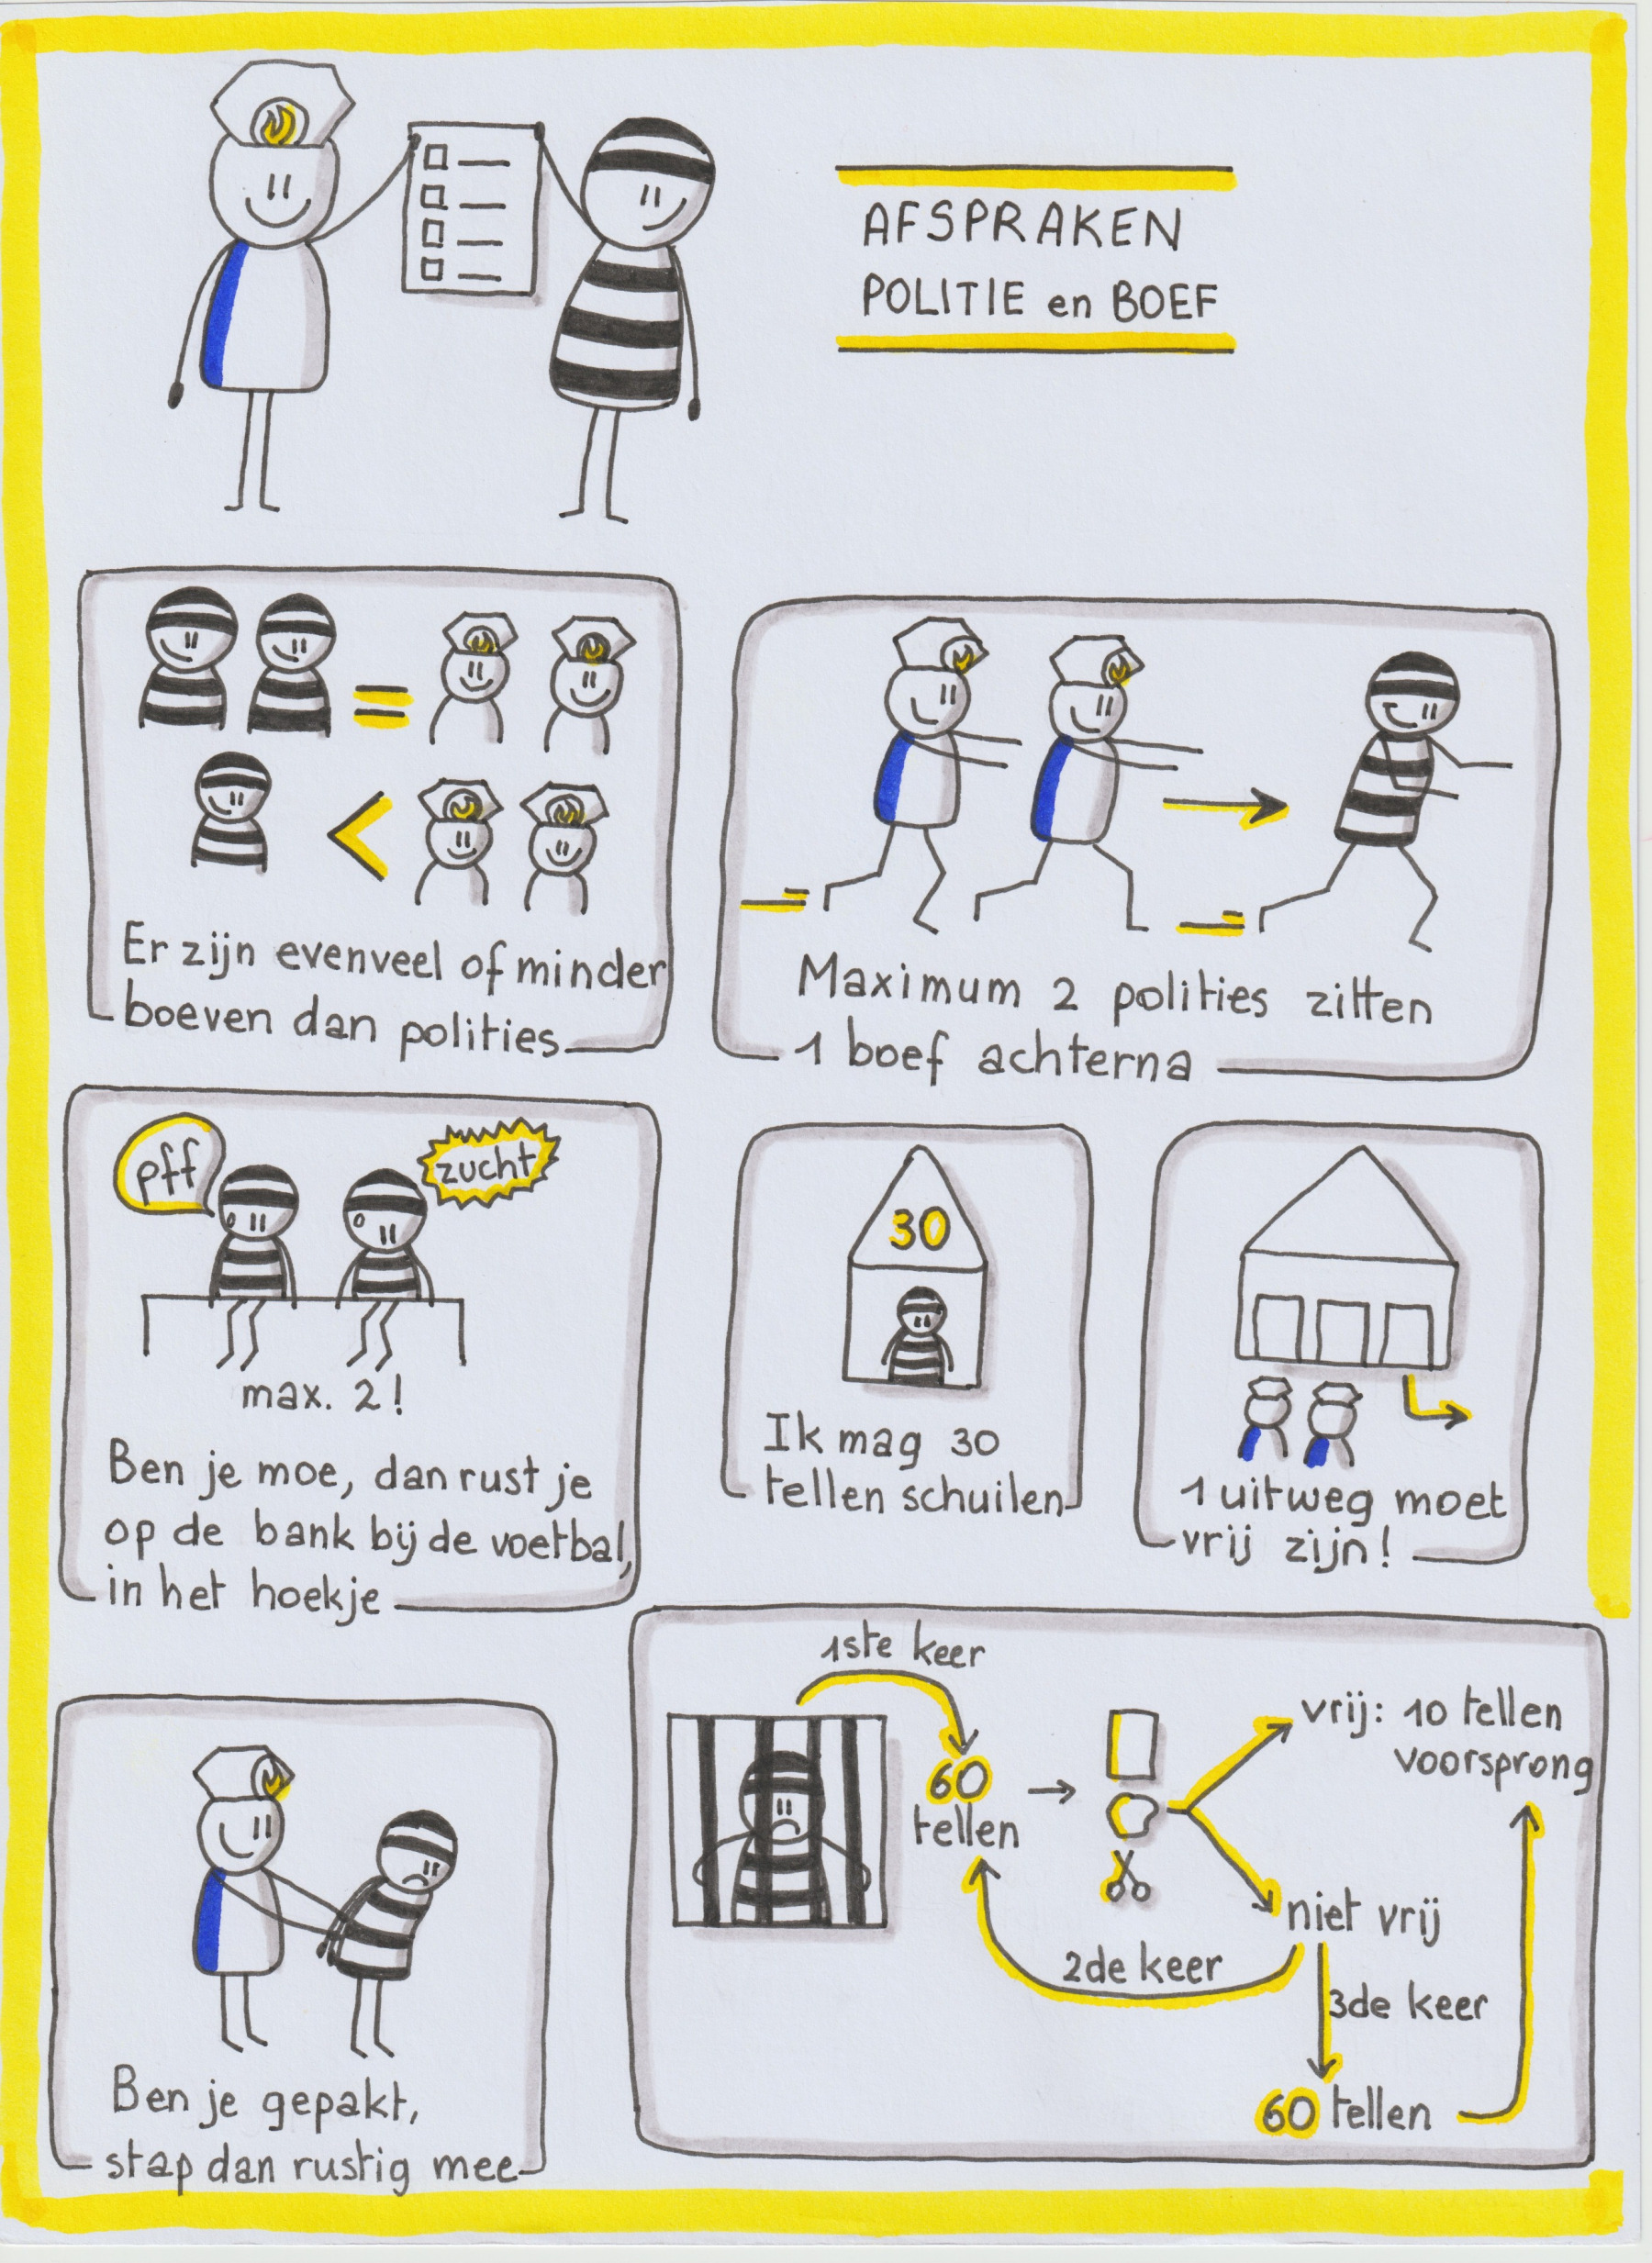 AFSPRAKEN
POLITIE en BOEF
=
<
Er zijn evenveel of minder
boeven dan polities
Maximum 2 polities zitten
1 boef achterna
pff
zucht
max. 2!
Ben je moe, dan rust je
op de bank bij de voetbal,
in het hoekje
30
Ik mag 30
tellen schuilen
1 uitweg moet
vrij zijn!
Ben je gepakt,
stap dan rustig mee
1ste keer
60
tellen
vrij: 10 tellen
voorsprong
niet vrij
2de keer
3de keer
60 tellen